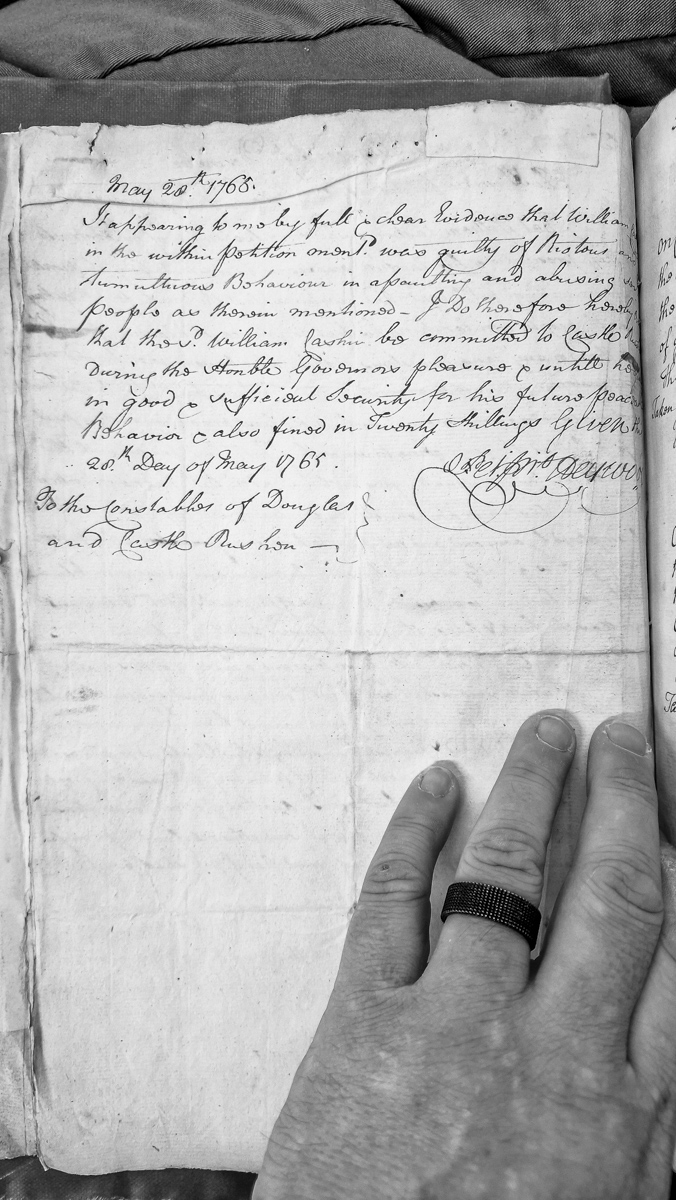 May 28.th 1765.
It appearing to me by full & clear Evidence that William
in the within Petition ment.d was guilty of Riotous and
tumultuous Behaviour in assaulting and abusing
people as therein mentioned – I Do therefore hereby
that the s.d William Cashin be committed to Castle
During the Honble Governors pleasure & untill he
in good & sufficient Security for his future Peace
Behavior & also fined in Twenty Shillings Given
28.th Day of May 1765.
To the Constables of Douglas
and Castle Rushen —
on
the
the
of
Taken